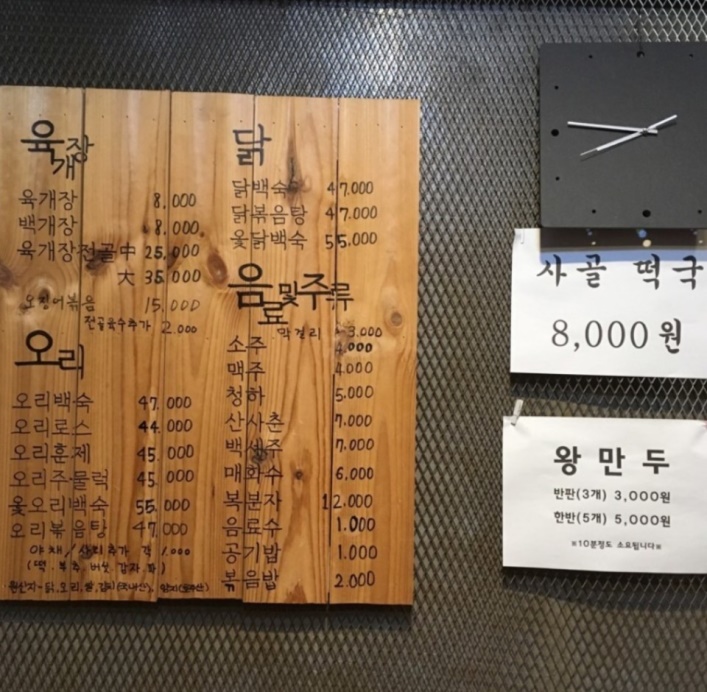 육개장
육개장 8,000
백개장 8,000
육개장전골中 25,000
大 35,000
오징어볶음 15,000
전골육수추가 2.000
오리
오리백숙 47.000
오리로스 44.000
오리훈제 45.000
오리주물럭 45.000
옻오리백숙 55.000
오리볶음탕 47,000
야채/사리추가 각 1.000
(떡.부추.버섯.감자.파)
원산지-닭,오리,쌀,김치(국내산),
닭
닭백숙 47,000
닭볶음탕 47,000
옻닭백숙 55,000
음료및주류
막걸리 3.000
소주 4,000
맥주 4.000
청하 5,000
산사춘 7.000
백세주 7,000
매화수 6,000
복분자 12.000
음료수 1.000
공기밥 1.000
볶음밥 2.000
사골 떡국
8,000원
왕만두
반판(3개) 3,000원
한반(5개) 5,000원
※10분정도 소요됩니다※